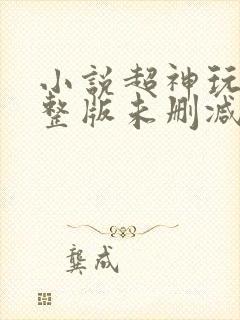 小說超神玩
整版未删减
龔成